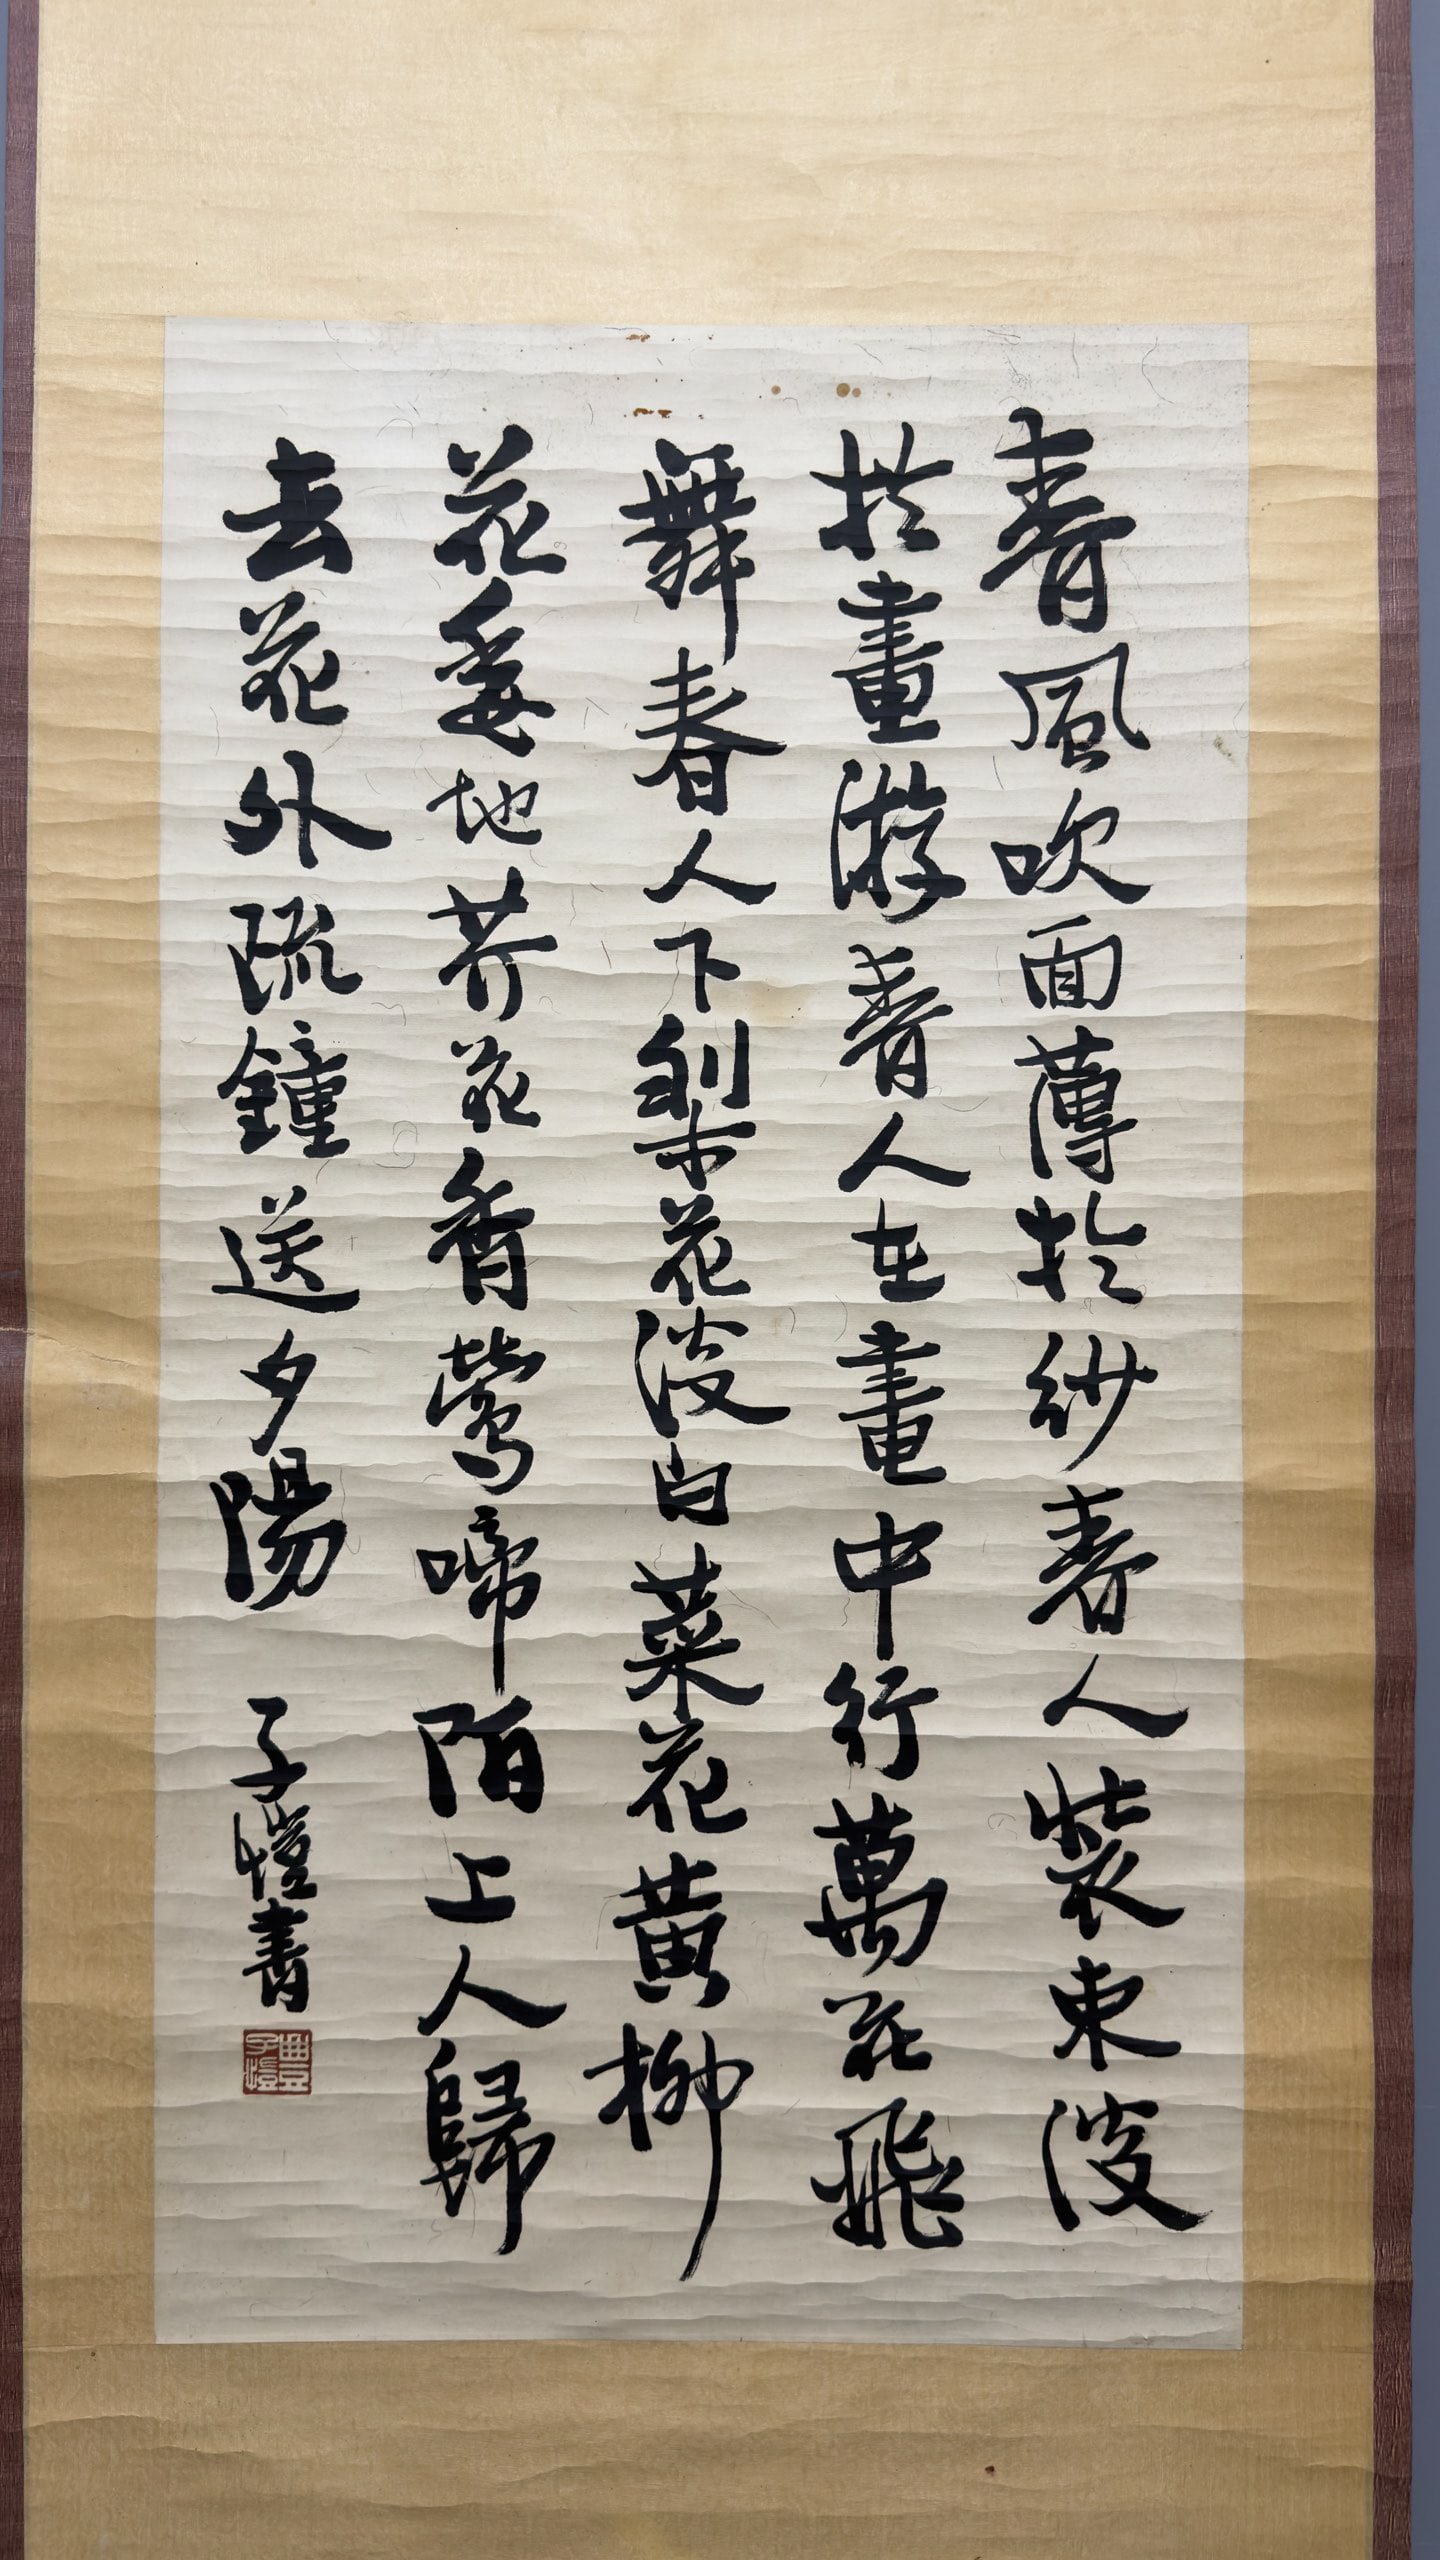 春風吹面薄於紗春人裝束淡
於畫游春人在畫中行萬花飛
舞春人下梨花淡白菜花黃柳
花委地芥花香鶯啼陌上人歸
去花外疏鐘送夕陽 子愷書
豐子愷